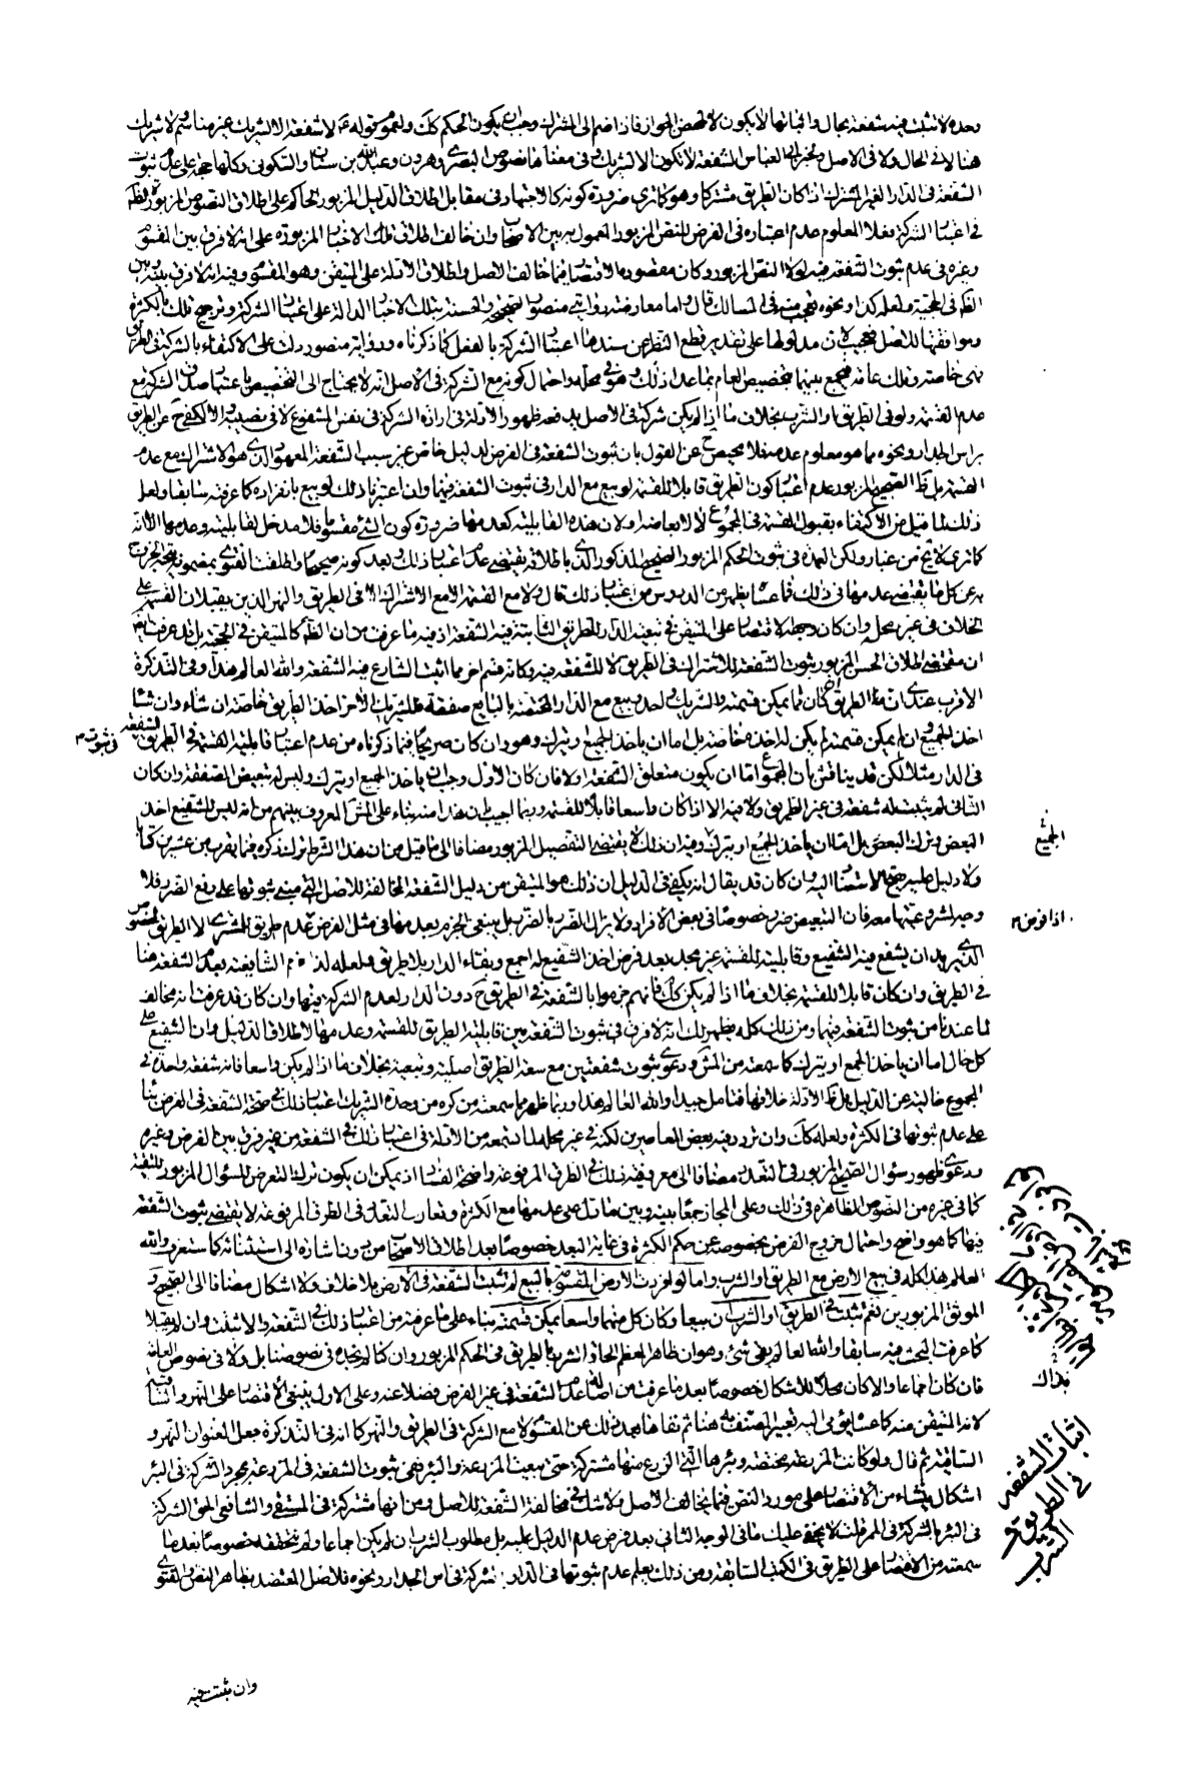 وحده لا تثبت فيه شفعة بحال واثباتها لا يكون لا لمحض الجواز فاذا ضم الى المشترك وجب ان يكون الحكم كك ولعموم قوله ع لا شفعة الا لشريك غير مقاسم ولا شريك
هنا لا في الحال ولا في الاصل وخبر ابى العباس الشفعة لا تكون الا لشريك وفى معناها نصوص البصرى وهرون وعبد الله بن سنان والسكونى وكلها حجة على عدم ثبوت
الشفعة فى الدار لغير الشريك اذا كان الطريق مشتركا وهو كما ترى ضرورة كونه كالاجتهاد فى مقابل اطلاق الدليل المزبور الحاكم على اطلاق النصوص المزبورة
فى اعتبار الشركة فعلا المعلوم عدم اعتباره فى الفرض للنص المزبور المعمول به بين الاصحاب وان خالف اطلاق تلك الاخبار المزبورة على انه لا فرق بين المقسوم
وغيره فى عدم ثبوت الشفعة فيه لولا النص المزبور وكان مقصوده الاقتصار فيما خالف الاصل واطلاق الادلة على المتيقن وهو المقسوم وفيه انه لا فرق بينه وبين
الظهور فى الحجية ولعله لذا ونحوه تعجب منه فى المسالك قال واما معارضة روايتى منصور الصحيحة والحسنة بتلك الاخبار الدالة على اعتبار الشركة وترجيح تلك بالكثرة
وموافقتها للاصل فعجيب لان مدلولها على تقدير قطع النظر عن سندها اعتبار الشركة بالفعل كما ذكرناه ورواية منصور دلت على الاكتفاء بالشركة فى الطريق
فهى خاصة وتلك عامة فيجمع بينهما بتخصيص العام بما عدا ذلك وهو فى محله واحتمال كونه مع الشركة فى الاصل انه لا يحتاج الى التخصيص باعتبار صدق الشركة مع
عدم القسمة ولو فى الطريق او الشرب بخلاف ما اذا لم يكن شركة فى الاصل يدفعه ظهور الادلة فى ارادة الشركة فى نفس المشفوع لا فى مصبه والا لاكتفى ح عن الطريق
براس الجدار ونحوه مما هو معلوم عدمه فلا محيص ح عن القول بان ثبوت الشفعة فى الفرض لدليل خاص غير سبب الشفعة المعهود الذى هو الاشتراك مع عدم
القسمة بل ظ الصحيح المزبور عدم اعتبار كون الطريق قابلا للقسمة لو بيع مع الدار فى ثبوت الشفعة فيهما وان اعتبرنا ذلك لو بيع بانفراده كما عرفته سابقا ولعل
ذلك لما قيل من الاكتفاء بقبول القسمة فى المجموع لا لابعاضه او لان هذه القابلية كعدمها ضرورة كون الشئ مقسوما فلا مدخل لقابليته وعدمها الا انه
كما ترى لا يخ من غبار ولكن العمدة فى ثبوت الحكم المزبور الصحيح المذكور الذى باطلاقه يقتضى عدم اعتبار ذلك وبعد كونه صحيحا واطلقت الفتوى بمضمونه يتجه الخروج
به عن كل ما يقتضى عدمها فى ذلك فما عساه يظهر من الدروس من اعتبار ذلك قال ولا مع القسمة الا مع الاشتراك فى الطريق والنهر الذين يقبلان القسمة على
الخلاف فى غير محله وان كان وجهه الاقتصار على المتيقن فى تبعية الدار للطريق الثابتة فيه الشفعة اذ فيه ما عرفت من ان الظهور كالمتيقن فى الحجية بل قد عرفت ايضا
ان مقتضى اطلاق الحسن المزبور ثبوت الشفعة للاشتراك فى الطريق لا للشفعة فيه وكانه قسم اخر مما اثبت الشارع فيه الشفعة والله العالم هذا وفى التذكرة
الاقرب عندى ان الطريق ان كان مما يمكن قسمته والشريك واحد وبيع مع الدار المختصة بالبايع صفقة فللشريك الاخر اخذ الطريق خاصة ان شاء وان شاء
اخذ الجميع وان لم يمكن قسمته لم يكن له اخذه خاصة بل اما ان ياخذ الجميع او يترك وهو وان كان صريحا فيما ذكرناه من عدم اعتبار قابلية القسمة فى الطريق
وثبوت الشفعة
فى الدار مثلا لكن قد يناقش بان المجموع اما ان يكون متعلق الشفعة اولا فان كان الاول وجب ان ياخذ الجميع او يترك وليس له تبعيض الصفقة وان كان
الثانى لم يثبت له شفعة فى غير الطريق ولا فيه الا اذا كان واسعا قابلا للقسمة وربما اجيب بان هذا منه بناء على المش المعروف بينهم من انه ليس للشفيع اخذ
البعض وترك البعض بل اما ان ياخذ الجميع او يترك وفيه ان ذلك لا يقتضى التفصيل المزبور مضافا الى ما قيل من ان هذا الشرط ترك ذكره فيما يقرب من عشرين كتابا
ولا دليل عليه يرجع الاستناد اليه وان كان قد يقال انه يكفى فى الدليل ان ذلك هو المتيقن من دليل الشفعة المخالفة للاصل التى مبنى ثبوتها على رفع الضرر فلا
وجه لشرعيتها معه فان التبعيض ضرر خصوصا فى بعض الافراد ولا يزال الضرر بالضرر بل ينبغى الجزم بعدمها فى مثل الفرض عدم طريق للمشترى الا الطريق المخصوص
الذى يريد ان يشفع فيه الشفيع وقابليته للقسمة غير مجد بعد فرض اخذ الشفيع له اجمع وبقاء الدار بلا طريق ولعله لذا الشافعية بعدم الشفعة هنا
فى الطريق وان كان قابلا للقسمة بخلاف ما اذا لم يكن كك فانهم جزموا بالشفعة فى الطريق ح دون الدار لعدم الشركة فيها وان كان قد عرفت انه مخالف
لما عندنا من ثبوت الشفعة فيهما ومن ذلك كله يظهر لك انه لا فرق فى ثبوت الشفعة بين قابلية الطريق للقسمة وعدمها لاطلاق الدليل وان الشفيع على
كل حال اما ان ياخذ الجميع او يترك كما سمعته من المش ودعوى ثبوت شفعتين مع سعة الطريق اصلية وتبعية بخلاف ما اذا لم يكن واسعا فانه شفعة واحدة فى
المجموع خالية عن الدليل بل ظ الادلة خلافها فتامل جيدا والله العالم هذا وربما ظهر مما سمعته من كره من وحدة الشريك اعتبار ذلك فى صحة الشفعة فى الفرض بناء
على عدم ثبوتها فى الكثرة ولعله كك وان تردد فيه بعض المعاصرين لكنه فى غير محله لما سمعته من الادلة فى اعتبار ذلك فى الشفعة من غير فرق بين الفرض وغيره
ودعوى ظهور سؤال الصحيح المزبور فى التعدد مضافا الى معروفية ذلك فى الطرق المرفوعة واضحة الفساد اذ يمكن ان يكون ترك التعرض للسؤال المزبور للتقية
كما فى غيره من النصوص الظاهرة فى ذلك وعلى المجاز جمعا بينه وبين ما تدل على عدمها مع الكثرة وتعارف التعدد فى الطرق المرفوعة لا يقتضى ثبوت الشفعة
فيها كما هو واضح واحتمال خروج الفرض بخصوصه عن حكم الكثرة فى غاية البعد خصوصا بعد اطلاق الاصحاب من دون اشارة الى استثنائه كما ستعرف والله
العالم هذا كله فى بيع الارض مع الطريق او الشرب واما لو افردت الارض المقسومة بالبيع لم تثبت الشفعة فى الارض بلا خلاف ولا اشكال مضافا الى الصحيح و
الموثق المزبورين نعم تثبت فى الطريق او الشرب ان بيعا وكان كل منهما واسعا يمكن قسمته بناء على ما عرفته من اعتبار ذلك فى الشفعة والا ثبتت وان لم يقبلا
كما عرفت البحث فيه سابقا والله العالم بقى شئ وهو ان ظاهر المعظم الحاق الشرب بالطريق فى الحكم المزبور وان كنا لم نجده فى نصوصنا بل ولا فى نصوص العامة
فان كان اجماعا والا كان محلا للاشكال خصوصا بعد ما عرفت من اصالة عدم الشفعة فى غير الفرض وفضلا عنه وعلى الاول ينبغى الاقتصار على النهر والساقية
لانه المتيقن منه كما عساه يومى اليه تعبير المصنف به هنا ثم نفاها بعد ذلك عن المقسوم لا مع الشركة فى الطريق والنهر كما انه فى التذكرة جعل العنوان النهر و
الساقية ثم قال ولو كانت المزرعة مختصة وبئرها التى الزرع منها مشتركة حتى بيعت المزرعة والبئر ففى ثبوت الشفعة فى المزرعة بمجرد الشركة فى البئر
اشكال ينشاء من الاقتصار على مورد النص فيما يخالف الاصل ولا شك فى مخالفة الشفعة للاصل ومن انها مشتركة فى المسقى والشافعى الحق الشركة
فى البئر بالشركة فى الممر قلت لا يخفى عليك ما فى الوجه الثانى بعد فرض عدم الدليل عليه بل مطلوب الشرب ان لم يكن اجماعا ولم نتحققه خصوصا بعد ما
سمعته من الاقتصار على الطريق فى الكتب السابقة ومن ذلك يعلم عدم ثبوتها فى الدار بالشركة فى اس الجدار ونحوه فلا ضل المعتضد بظاهر النص والفتوى
الجميع
اذا فرض
بذلك
اثبات الشفعة
فى الطريق و
الشرب
وان ثبتت فيه